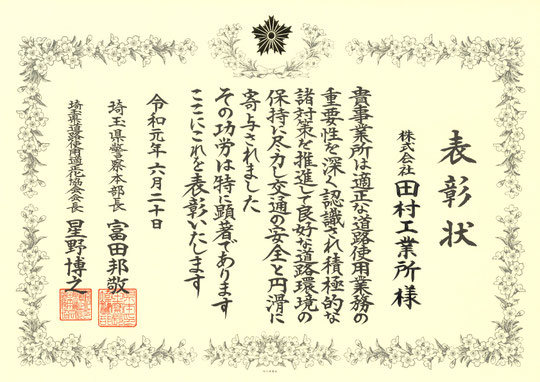 表彰状
株式会社 田村工業所様
貴事業所は適正な道路使用業務の
重要性を深く認識され積極的な
諸対策を推進して良好な道路環境の
保持に尽力し交通の安全と円滑に
寄与されました
その功労は特に顕著であります
ここにこれを表彰いたします
令和元年六月二十日
埼玉県警察本部長 富田邦敬
埼玉県道路使用適正化協会会長 星野博之